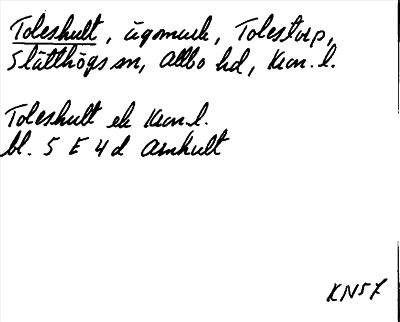 Toleshult, ägomark, Tolestorp,
Slätthögs sn, Allbo hd, Kron. l.
Toleshult ek Kron. l.
bl. 5 E 4 d Amhult
KN57